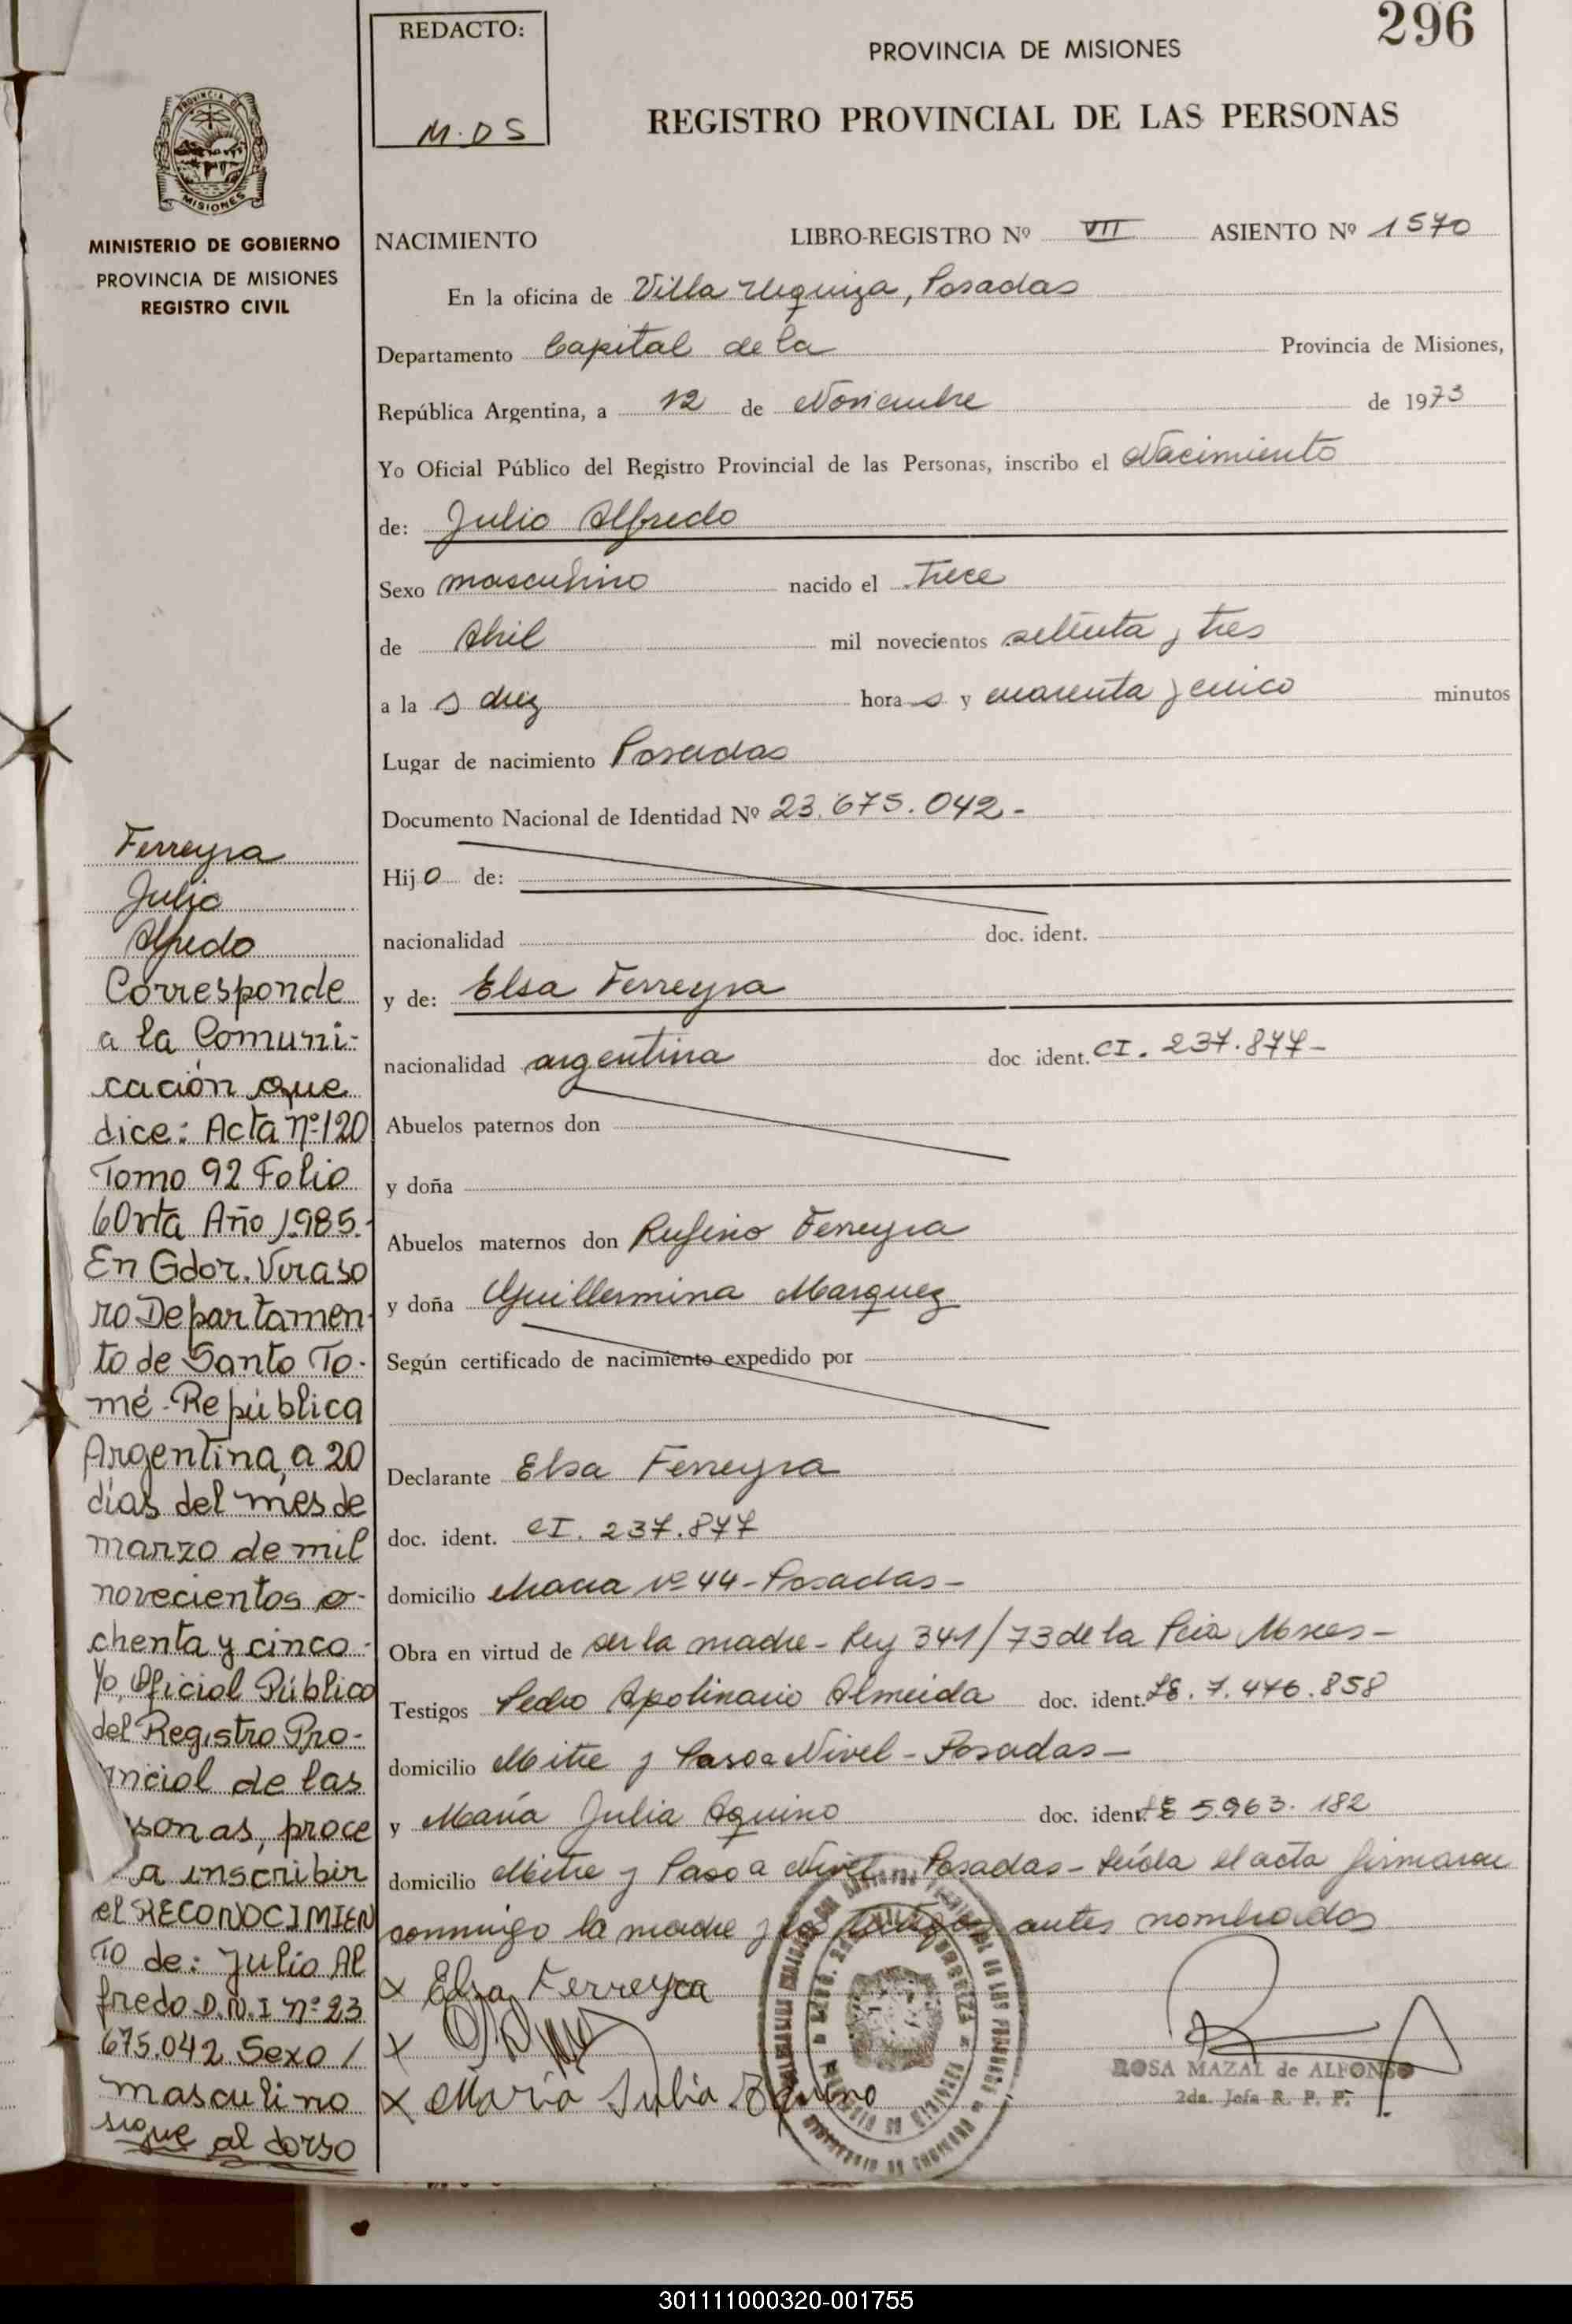 296
REDACTO:
M.D S
PROVINCIA DE MISIONES
REGISTRO PROVINCIAL DE LAS PERSONAS
MISIONES
MINISTERIO DE GOBIERNO
PROVINCIA DE MISIONES
REGISTRO CIVIL
NACIMIENTO LIBRO-REGISTRO Nº VII ASIENTO Nº 1570
En la oficina de Villa Urquiza, Posadas
Departamento Capital de la Provincia de Misiones,
República Argentina, a 12 de Noviembre de 1973
Yo Oficial Público del Registro Provincial de las Personas, inscribo el Nacimiento
de: Julio Alfredo
Sexo masculino nacido el trece
de Abril mil novecientos setenta y tres
a la s diez hora s y cuarenta y cinco minutos
Lugar de nacimiento Posadas
Documento Nacional de Identidad Nº 23.675.042-
Hij o de:
nacionalidad doc. ident.
y de: Elsa Ferreyra
nacionalidad argentina doc ident. CI. 237.877-
Abuelos paternos don
y doña
Abuelos maternos don Rufino Ferreyra
y doña Guillermina Marquez
Según certificado de nacimiento expedido por
Declarante Elsa Ferreyra
doc. ident. CI. 237.877
domicilio nº 44-Posadas-
Obra en virtud de ser la madre- Ley 341/73 de la Pcia Mnes-
Testigos Pedro Apolinario Almeida doc. ident. LE. 7.476.858
domicilio Mitre y Paso a Nivel-Posadas-
y María Julia Aquino doc. ident. 5.963.182
domicilio Mitre y Paso a Nivel Posadas- Leída el acta firmaron
conmigo la madre y los testigos antes nombrados
x Elsa Ferreyra
x
x María Julia Aquino
ROSA MAZAL de ALFONSO
2da. Jefa R. P. P.
Ferreyra
Julio
Alfredo
Corresponde
a la Comuni-
cación que
dice: Acta nº 120
Tomo 92 Folio
60vta Año 1985.-
En Gdor. Viraso
ro Departamen-
to de Santo To-
mé-República
Argentina, a 20
días del mes de
marzo de mil
novecientos o-
chenta y cinco-
Yo, Oficial Público
del Registro Pro-
incial de las
sonas, proce
a inscribir
el RECONOCIMIEN
TO de: Julio Al
fredo D.N.I nº 23
675.042 Sexo /
masculino
sigue al dorso
301111000320-001755